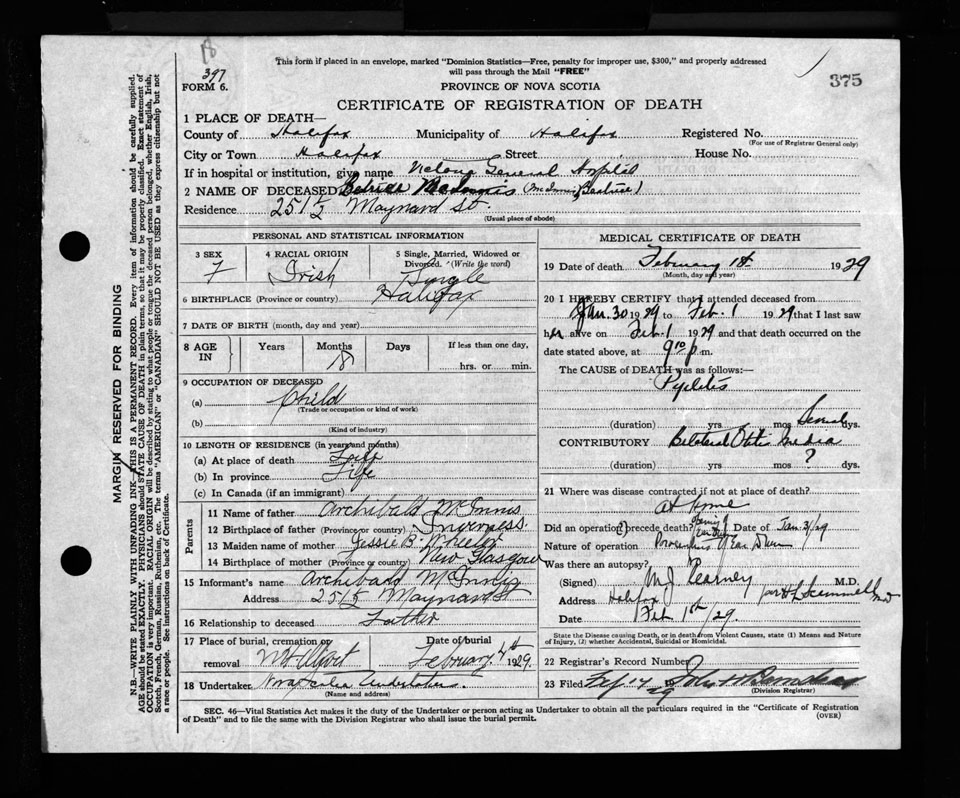 18
397
375
This form if placed in an envelope, marked "Dominion Statistics—Free, penalty for improper use, $300," and properly addressed
will pass through the Mail "FREE"
FORM 6.
PROVINCE OF NOVA SCOTIA
CERTIFICATE OF REGISTRATION OF DEATH
1 PLACE OF DEATH—
County of Halifax Municipality of Halifax Registered No.
(For use of Registrar General only)
City or Town Halifax Street House No.
If in hospital or institution, give name Victoria General Hospital
2 NAME OF DECEASED
Residence 251½ Maynard St.
(Usual place of abode)
PERSONAL AND STATISTICAL INFORMATION
3 SEX F
4 RACIAL ORIGIN Irish
5 Single, Married, Widowed or Divorced. (Write the word) Single
6 BIRTHPLACE (Province or country) Halifax
7 DATE OF BIRTH (month, day and year)
8 AGE IN Years Months 18 Days If less than one day, hrs. or min.
9 OCCUPATION OF DECEASED
(a) Child
(Trade or occupation or kind of work)
(b)
(Kind of industry)
10 LENGTH OF RESIDENCE (in years and months)
(a) At place of death Life
(b) In province Life
(c) In Canada (if an immigrant)
Parents
11 Name of father Archibald McInnis
12 Birthplace of father (Province or country) Inverness
13 Maiden name of mother Jessie B. Wheeler
14 Birthplace of mother (Province or country) New Glasgow
15 Informant's name Archibald McInnis
Address 251½ Maynard St
16 Relationship to deceased Father
17 Place of burial, cremation or removal Mt Olivet Date of burial February 4th 1929.
18 Undertaker Nova Scotia Undertakers.
(Name and address)
MEDICAL CERTIFICATE OF DEATH
19 Date of death February 1st 1929
(Month, day and year)
20 I HEREBY CERTIFY that I attended deceased from
Jan. 30 1929 to Feb. 1 1929 that I last saw
her alive on Feb. 1 1929 and that death occurred on the
date stated above, at 9 10 p.m.
The CAUSE of DEATH was as follows:
Pyelitis
(duration) yrs mos Several dys.
CONTRIBUTORY Bilateral Otitis Media
(duration) yrs mos ? dys.
21 Where was disease contracted if not at place of death?
At Home
Did an operation precede death? Date of Jan 31/29
Nature of operation
Was there an autopsy?
(Signed) M.J. Kearney M.D.
Address Halifax
Date Feb 1st/29.
State the Disease causing Death, or in death from Violent Causes, state (1) Means and Nature
of Injury, (2) whether Accidental, Suicidal or Homicidal.
22 Registrar's Record Number
23 Filed 19 29
(Division Registrar)
SEC. 46—Vital Statistics Act makes it the duty of the Undertaker or person acting as Undertaker to obtain all the particulars required in the "Certificate of Registration
of Death" and to file the same with the Division Registrar who shall issue the burial permit.
(OVER)
MARGIN RESERVED FOR BINDING
N.B.—WRITE PLAINLY WITH UNFADING INK—THIS IS A PERMANENT RECORD. Every item of information should be carefully supplied.
AGE should be stated EXACTLY. PHYSICIANS should STATE CAUSE OF DEATH in plain terms, so that it may be properly classified. Exact statement of
OCCUPATION is very important. RACIAL ORIGIN will be described by stating to what people or tongue the deceased person belonged, whether English, Irish,
Scotch, French, German, Russian, Ruthenian, etc. The terms "AMERICAN" or "CANADIAN" SHOULD NOT BE USED as they express citizenship but not
a race or people. See instructions on back of Certificate.